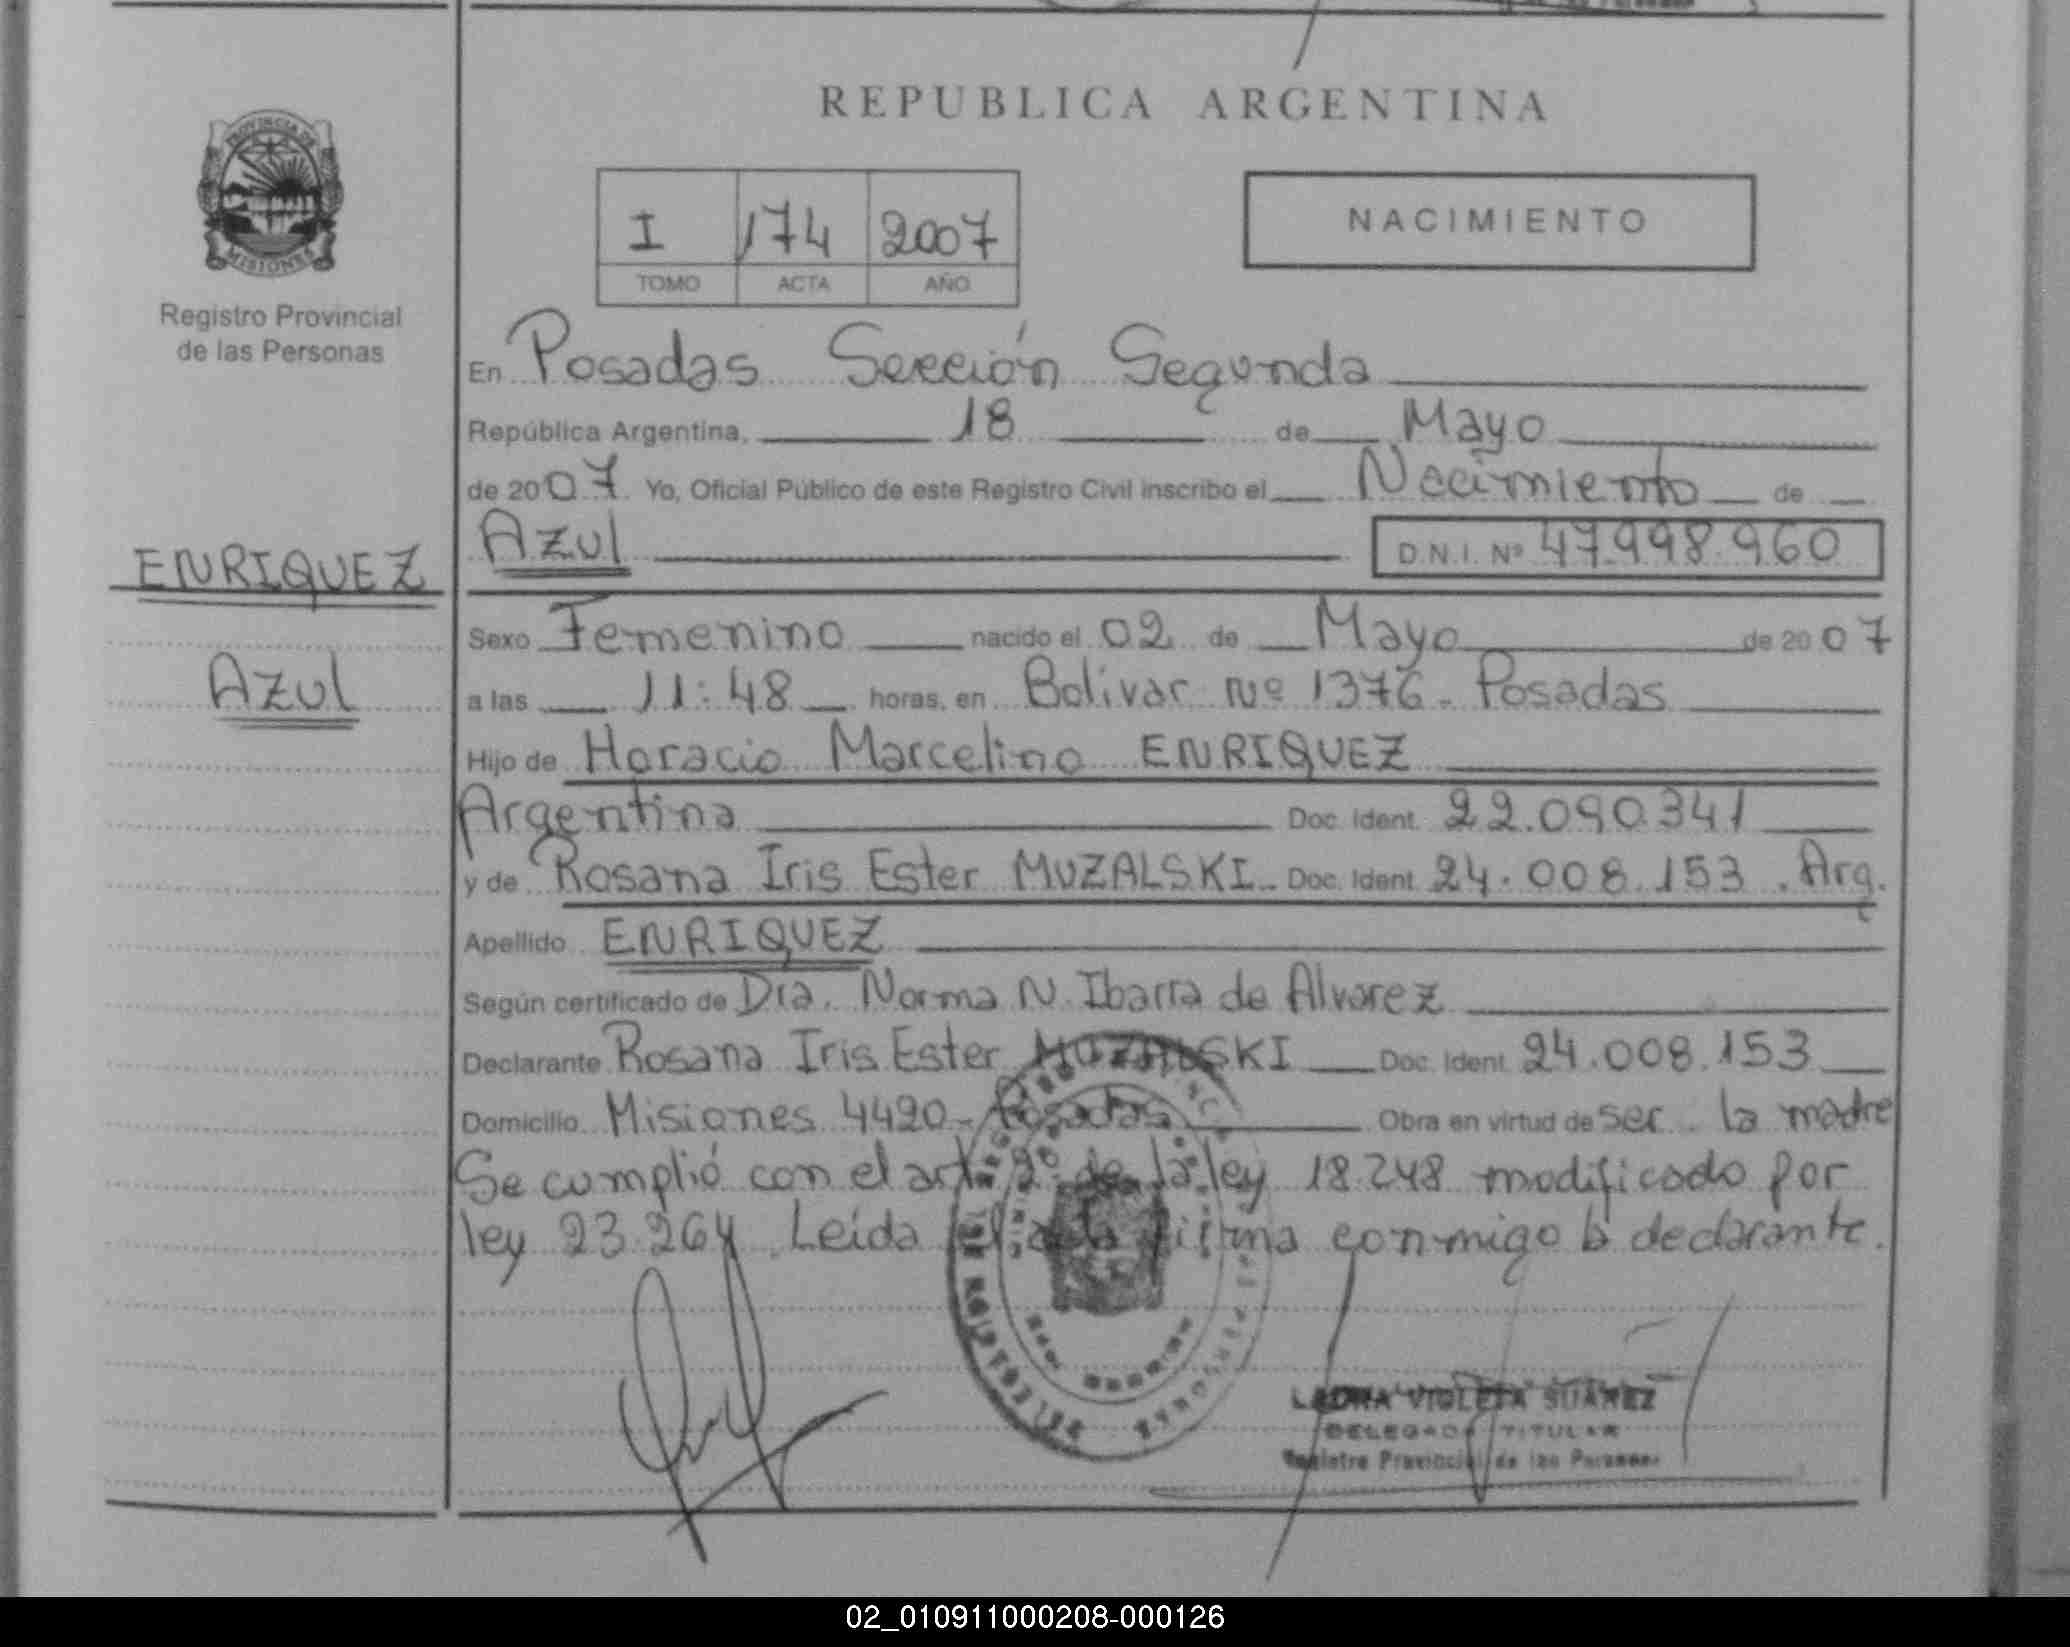 REPUBLICA ARGENTINA
PROVINCIA DE
MISIONES
Registro Provincial
de las Personas
I 174 2007
TOMO ACTA AÑO
NACIMIENTO
En Posadas Sección Segunda
República Argentina, 18 de Mayo
de 2007 Yo, Oficial Público de este Registro Civil inscribo el Nacimiento de
Azul D.N.I. Nº 47.998.960
ENRIQUEZ
Azul
Sexo Femenino nacido el 02 de Mayo de 2007
a las 11:48 horas, en Bolivar nº 1376 - Posadas
Hijo de Horacio Marcelino ENRIQUEZ
Argentina Doc. Ident. 22.090.341
y de Rosana Iris Ester MUZALSKI Doc. Ident. 24.008.153 . Arg.
Apellido ENRIQUEZ
Según certificado de Dra. Norma N. Ibarra de Alvarez
Declarante Rosana Iris Ester MUZALSKI Doc. Ident. 24.008.153
Domicilio Misiones 4420 - Posadas Obra en virtud de ser la madre
Se cumplió con el art. 2º de la ley 18.248 modificado por
ley 23.264 Leída firma conmigo la declarante.
VIOLETA SUAREZ
DELEGADA TITULAR
Registro Provincial de las Personas
02_010911000208-000126